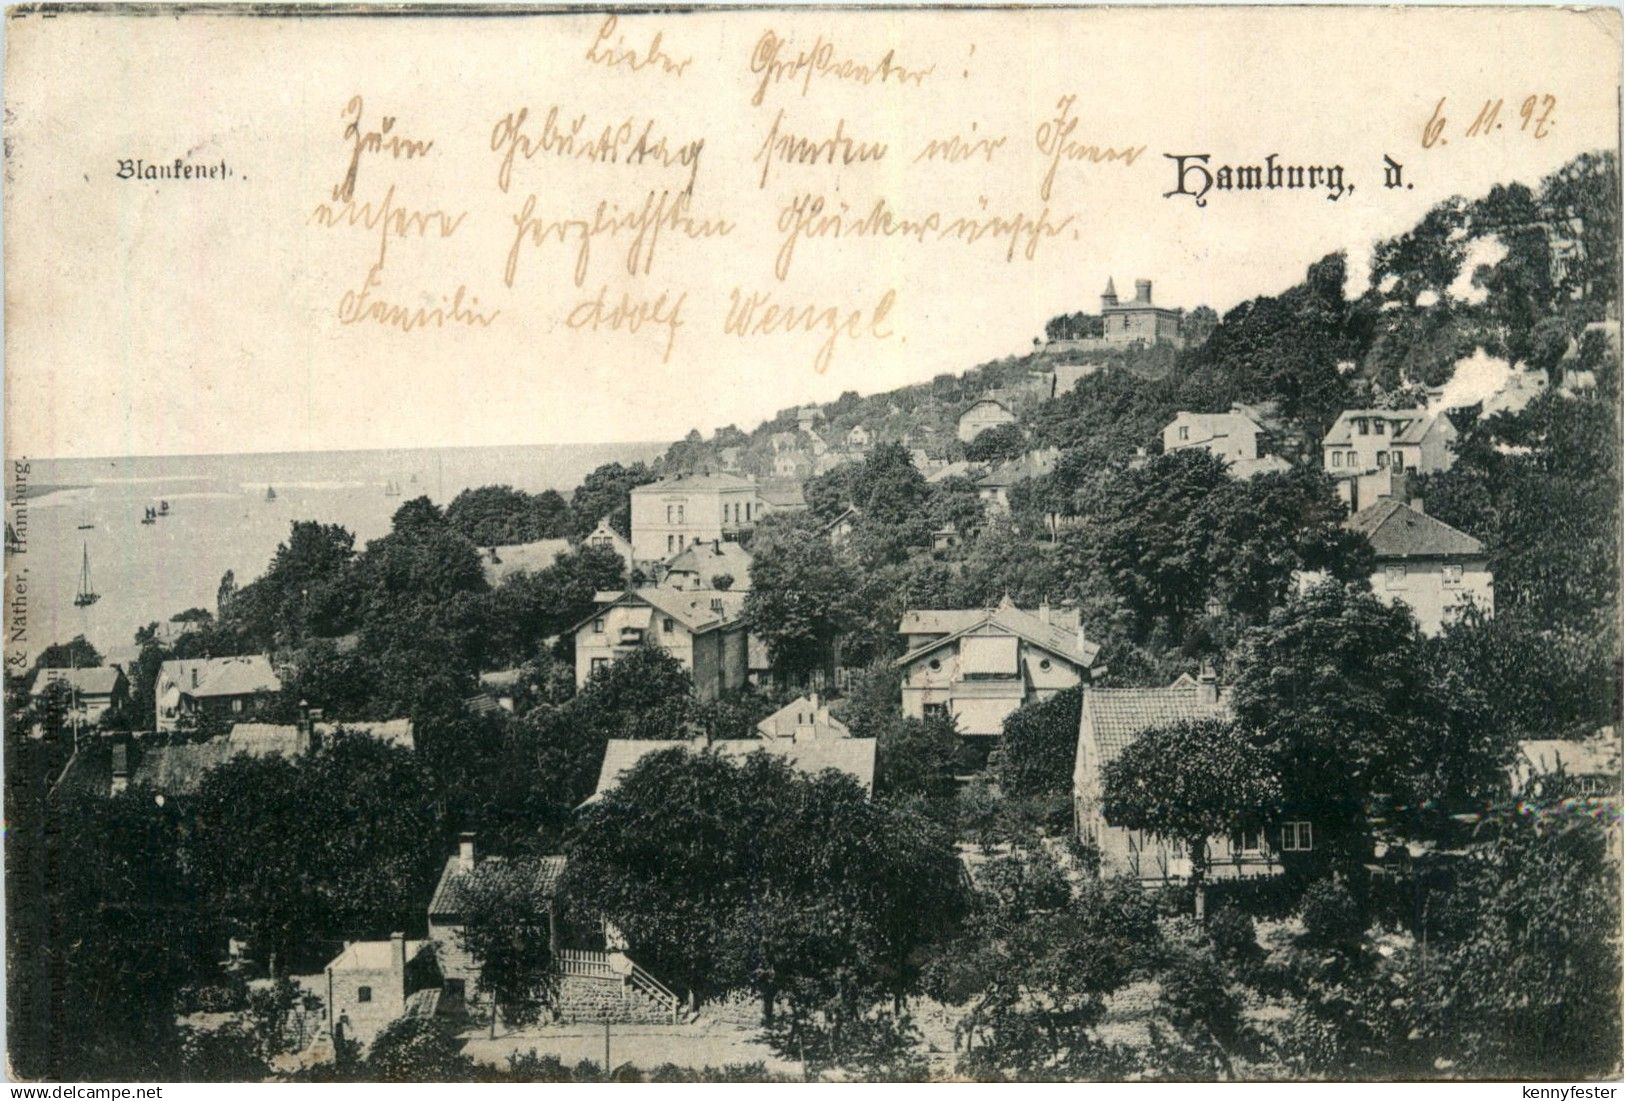 Lieber Großvater!
Zum Geburtstag senden wir Ihnen
unsere herzlichsten Glückwünsche.
Familie Adolf Wenzel.
Blankenes
Hamburg, d. 6. 11. 97.
& Nather, Hamburg.
delcampe.net
kennyfester